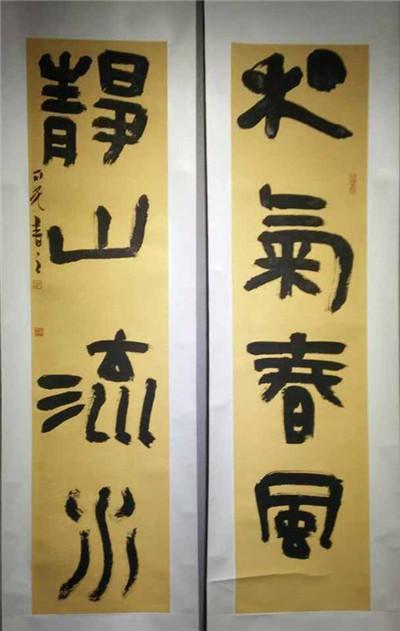 和氣春風
靜山流水